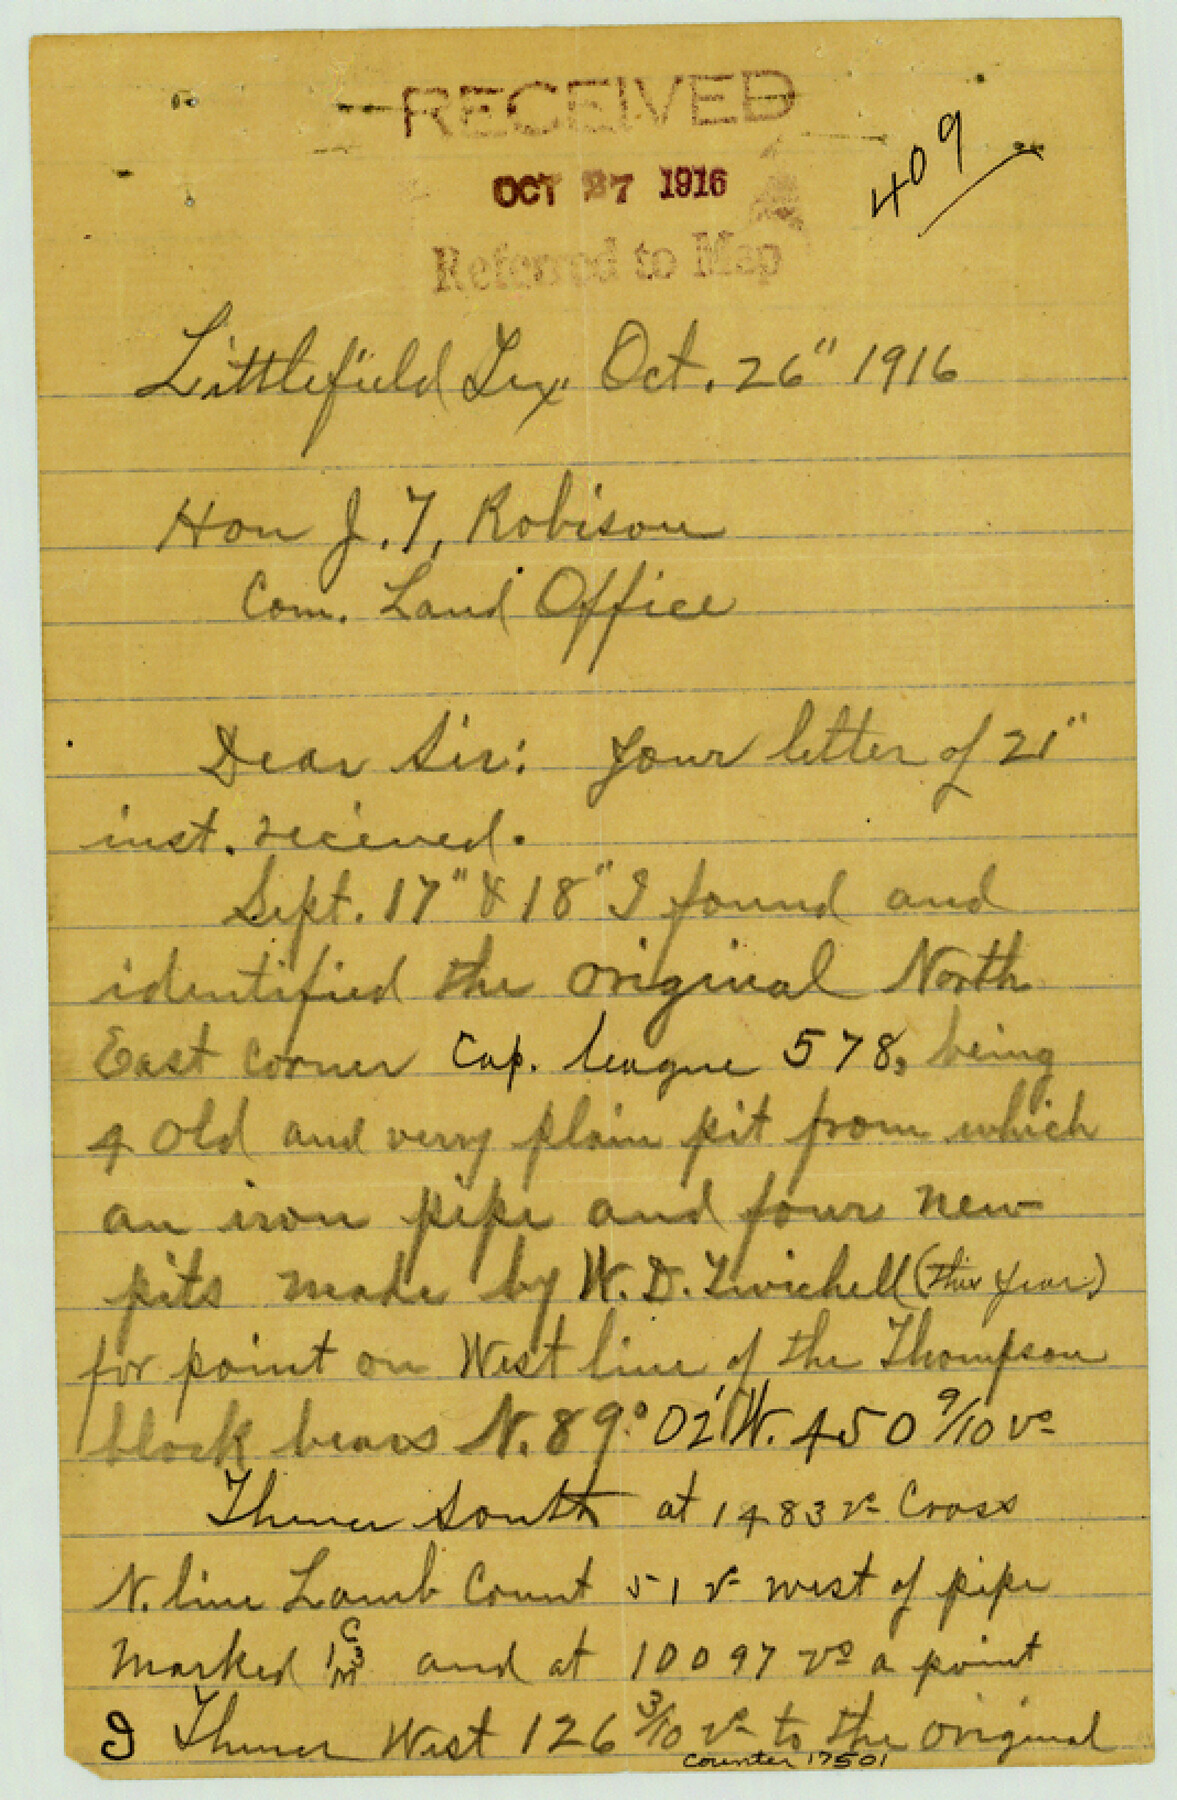 RECEIVED
OCT 27 1916
Referred to Map
409
Littlefield Tex. Oct. 26" 1916
Hon J. T. Robison
Com. Land Office
Dear Sir: Your letter of 21"
inst. recieved.
Sept. 17" & 18" I found and
identified the original North
East corner Cap. league 578, being
4 old and verry plain pit from which
an iron pipe and four new
pits made by W. D. Twichell (this year)
for point on West line of the Thompson
block bears N. 89° 02' W. 450 9/10 vs
Thence South at 1483 vs Cross
N. line Lamb Count 51 vs west of pipe
marked and at 10097 vs a point
I Thence West 126 3/10 vs to the original
counter 17501